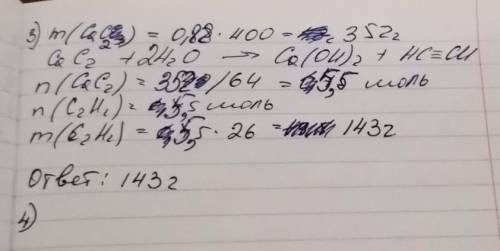 3) m(CaC2) = 0,88 · 400 = 352г
CaC2 + 2H2O → Ca(OH)2 + HC≡CH
n(CaC2) = 352/64 = 5,5 моль
n(C2H2) = 5,5 моль
m(C2H2) = 5,5 · 26 = 143г
Ответ: 143г
4)